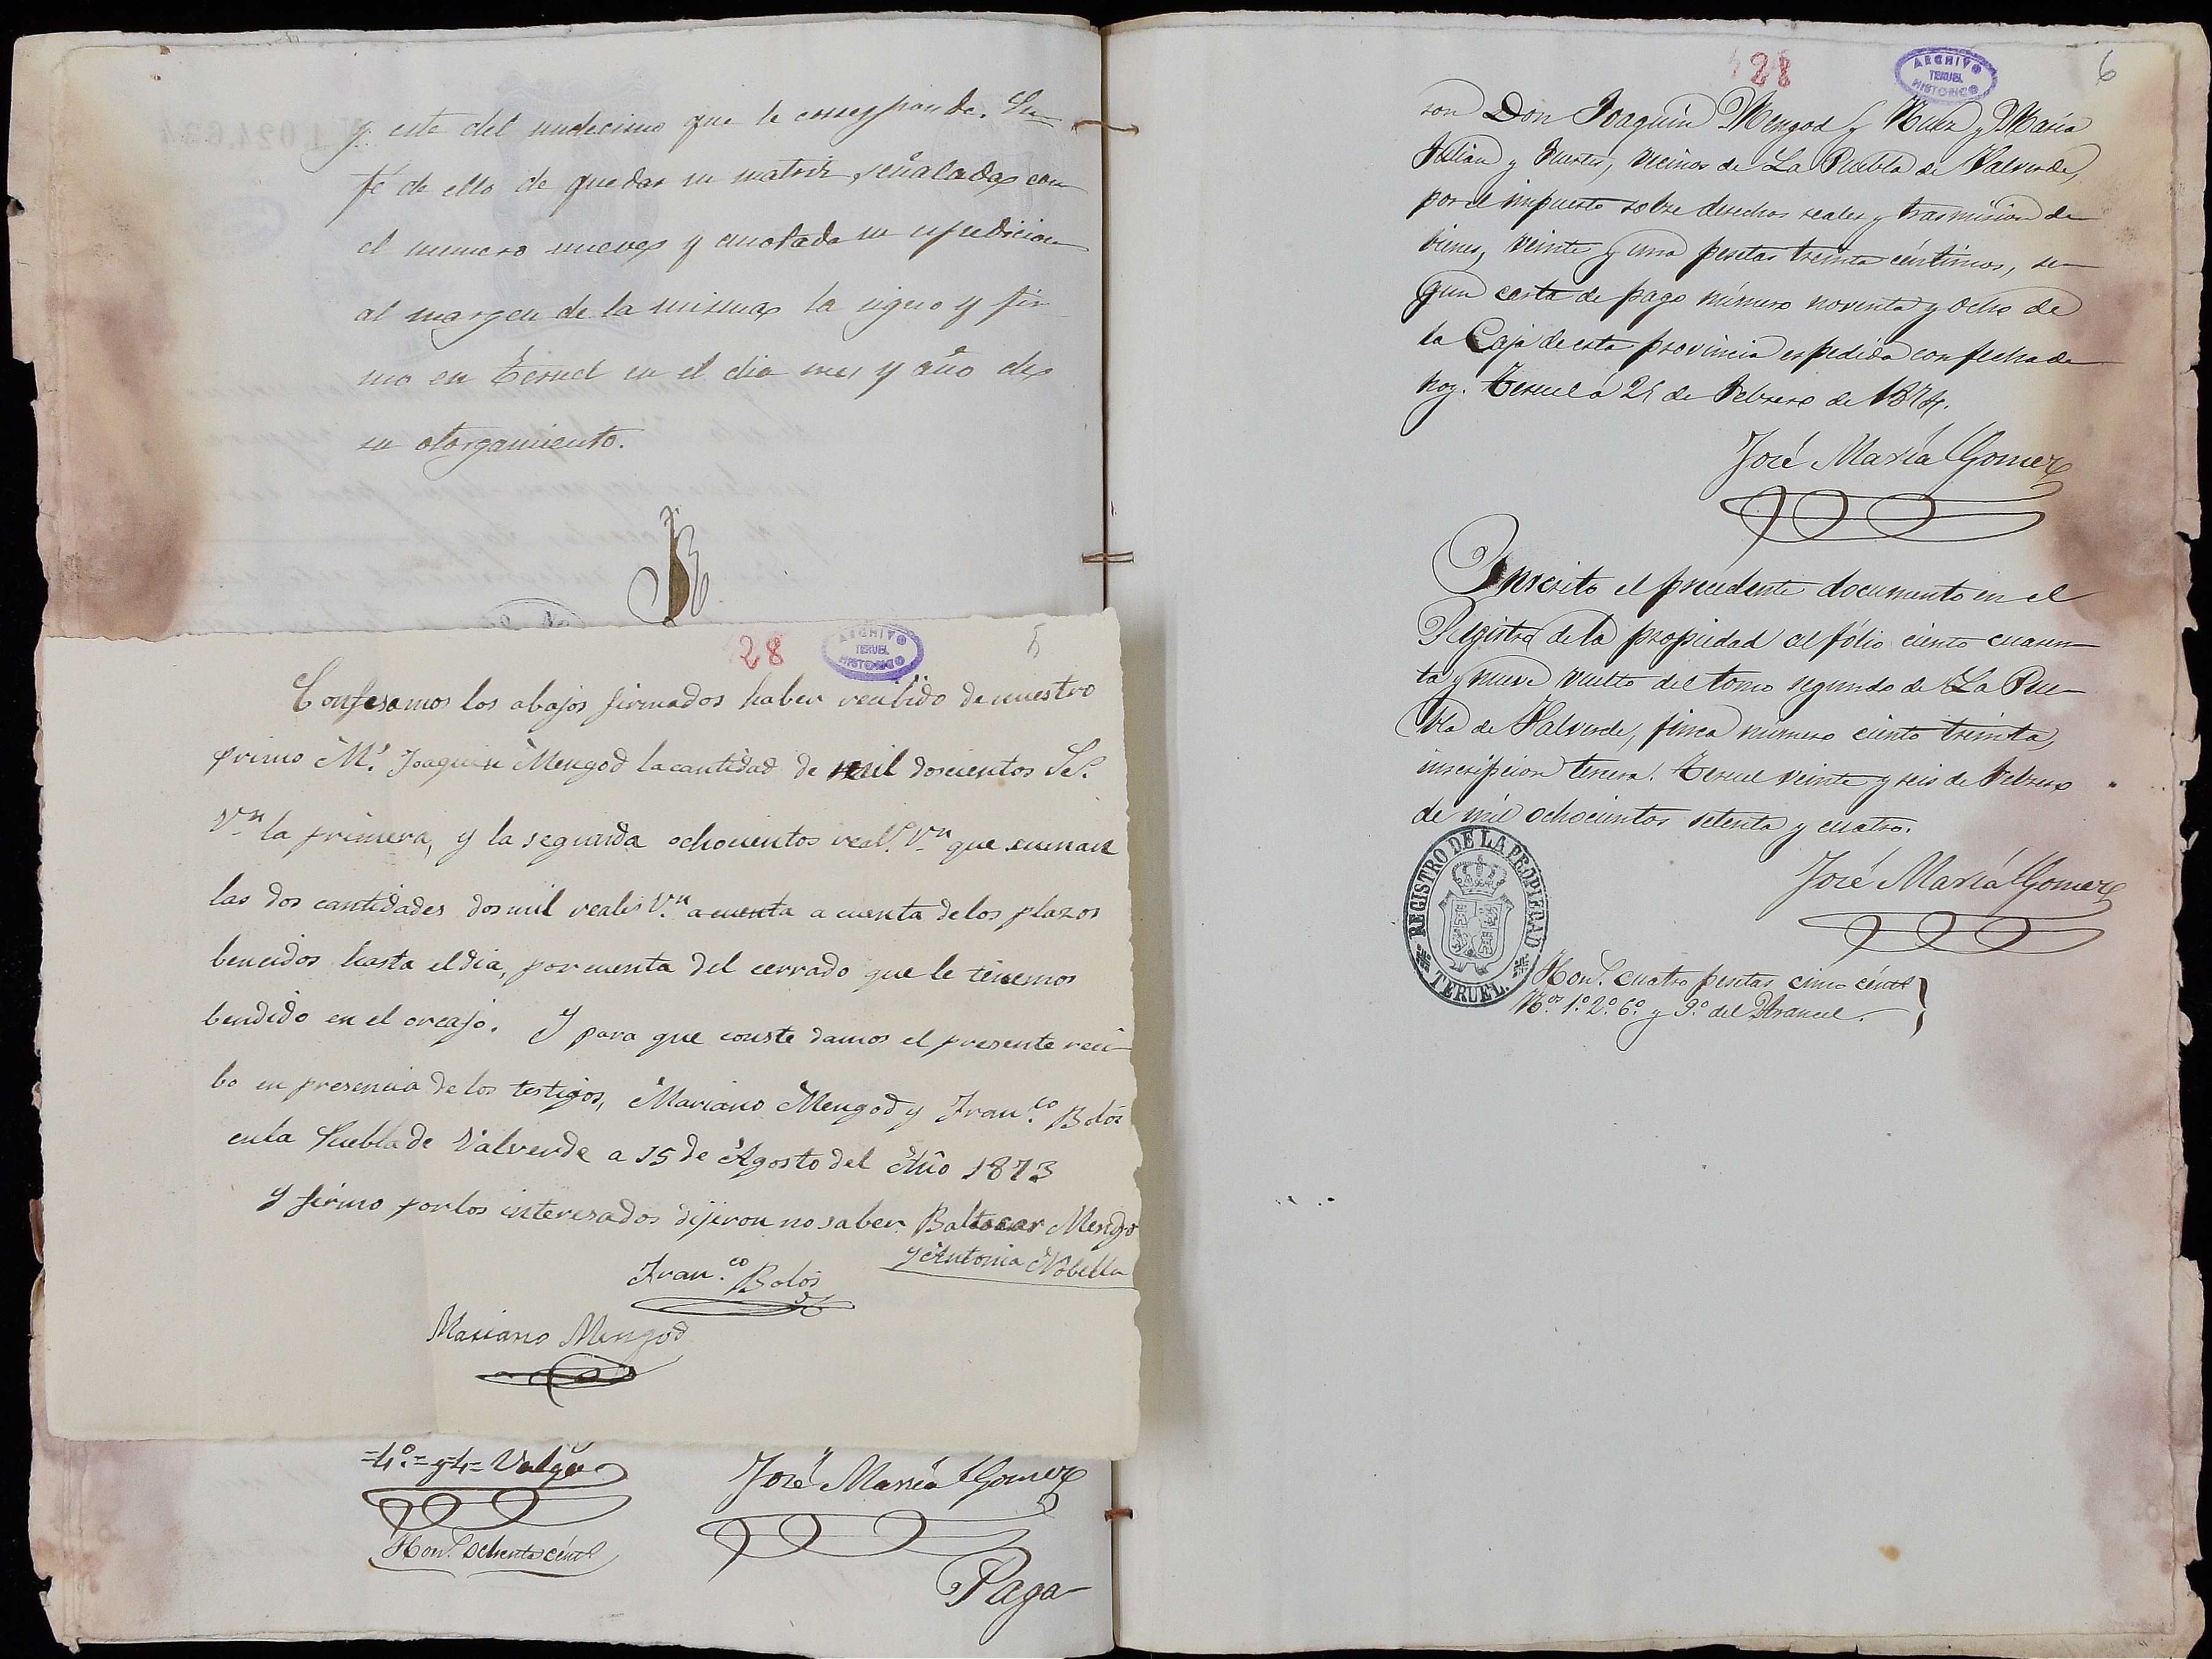 y este del undecimo que le corresponde. En
fé de ello de quedar su matriz, señalada con
el numero nueve y anotada su espedicion
al margen de la misma la signo y fir
mo en Teruel en el dia mes y año de
su otorgamiento.
128
ARCHIVO HISTORICO
TERUEL
5
Confesamos los abajos firmados haber recibido de nuestro
primo Mˡ. Joaquin Mengod la cantidad de mil doscientos Rˢ.
Vⁿ la primera, y la segunda ochocientos realˢ. Vⁿ que suman
las dos cantidades dos mil reales Vⁿ. a cuenta a cuenta de los plazos
bencidos hasta el dia, por cuenta del cerrado que le tenemos
bendido en el orcajo. Y para que conste damos el presente reci-
bo en presencia de los testigos, Mariano Mengod y Franᶜᵒ. Bolós
en la Puebla de Valverde a 15 de Agosto del Año 1873
Y firmo por los interesados dijeron no saber. Baltasar Mengo
y Antonia Nobella
Franᶜᵒ. Bolós
Mariano Mengod
=4º.= y 4= Valga
José María Gomez
Honˢ. ochenta céntˢ
Paga
128
ARCHIVO HISTORICO
TERUEL
6
ron Don Joaquin Mengod y y María
Julian y Fuertes, vecinos de La Puebla de Valverde,
por el impuesto sobre derechos reales y trasmision de
bienes, veinte y una pesetas treinta céntimos, se-
gun carta de pago número noventa y ocho de
la Caja de esta provincia espedida con fecha de
hoy. Teruel á 25 de Febrero de 1874.
José María Gomez
Inscrito el precedente documento en el
Registro de la propiedad al fólio ciento cuaren-
ta y nueve vuelto del tomo segundo de La Pue-
bla de Valverde, finca número ciento treinta,
inscripcion tercera. Teruel veinte y seis de Febrero
de mil ochocientos setenta y cuatro.
José María Gomez
REGISTRO DE LA PROPIEDAD
TERUEL.
Honˢ. cuatro pesetas cinco céntˢ
Nᵒˢ. 1º. 2º. 6º. y 9º. del Arancel.